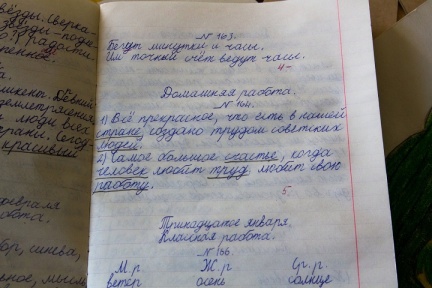 вёзды. Сверка-
№ 163.
Бегут минутки и часы.
Им точный счёт ведут часы.
4-
Домашняя работа.
№ 164.
1) Всё прекрасное, что есть в нашей
стране, создано трудом советских
людей.
2) Самое большое счастье, когда
человек любит труд, любит свою
работу.
5.
Тринадцатое января.
Классная работа.
№ 166.
М.р. Ж.р. Ср.р.
ветер осень солнце
люди всех
красивый
бота.
бор, синева,